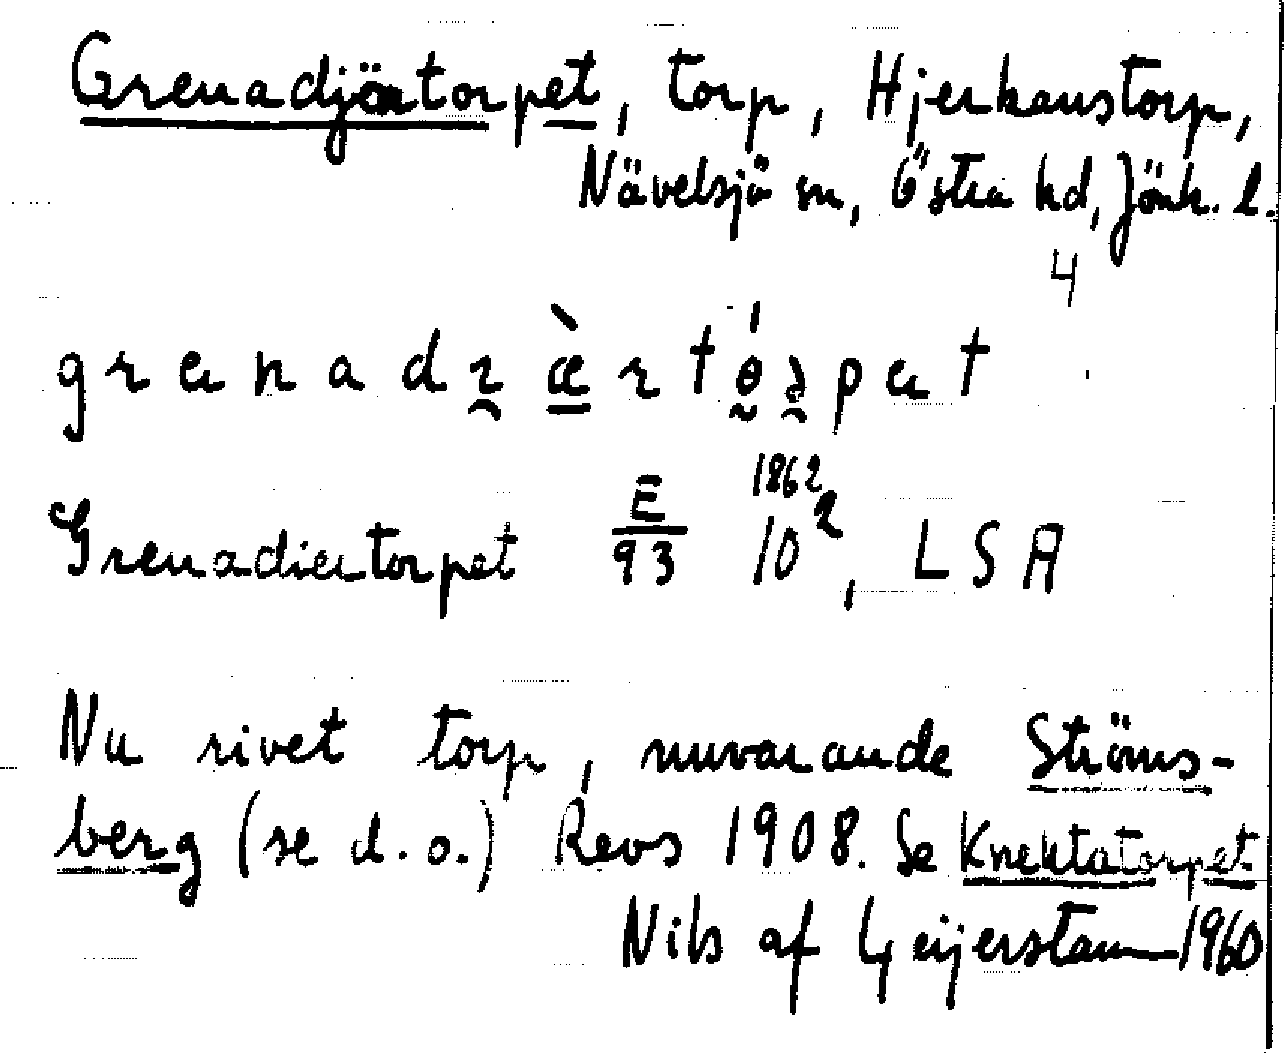 Grenadjörtorpet, torp, Hjerkanstorp,
Nävelsjö sn, Östra hd, Jönk. l.
4
Grenadiertorpet E/93 1862 10², LSA
Nu rivet torp, nuvarande Ströms-
berg (se d.o.) Revs 1908. Se Knektatorpet
Nils af Geijerstam 1960